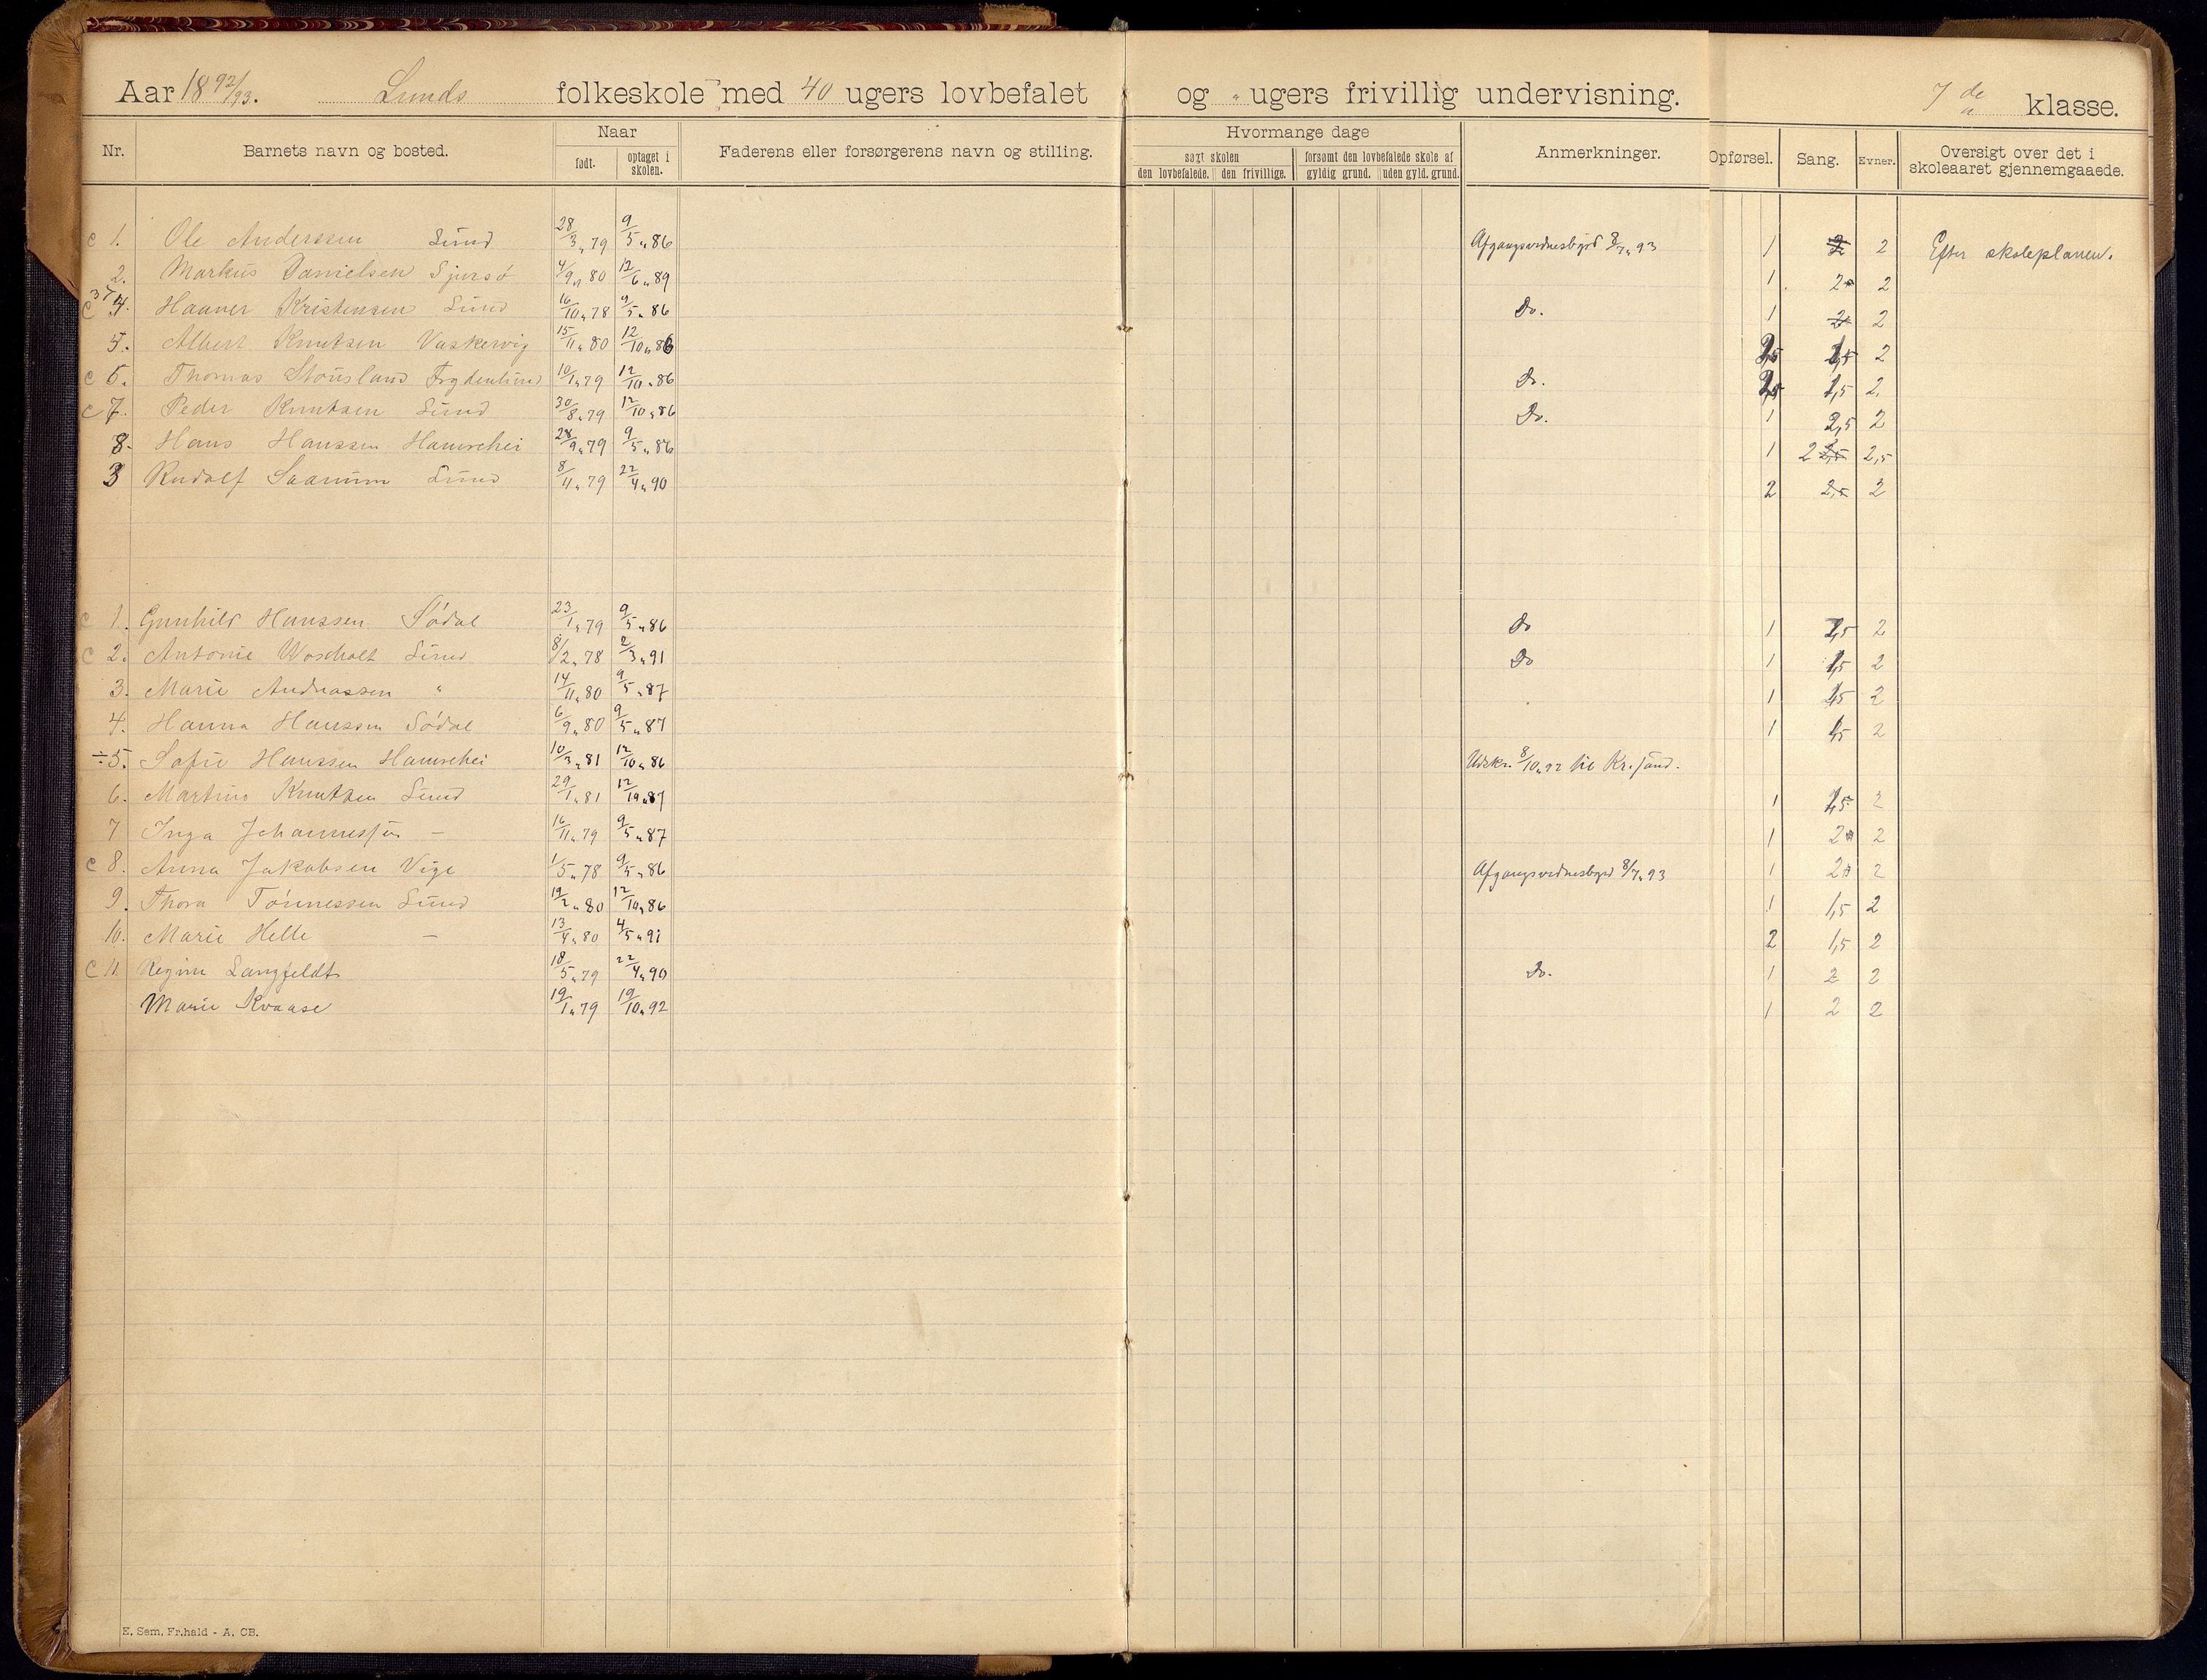 Aar 1892/93. Lunds folkeskole med 40 ugers lovbefalet og " ugers frivillig undervisning. 7de klasse.
Nr. Barnets navn og bosted. Naar født. optaget i skolen. Faderens eller forsørgerens navn og stilling. Hvormange dage søgt skolen den lovbefalede. den frivillige. forsømt den lovbefalede skole af gyldig grund. uden gyld. grund. Anmerkninger. Opførsel. Sang. Evner. Oversigt over det i skoleaaret gjennemgaaede.
c 1. Ole Anderssen Lund 28/3 " 79 9/5 " 86 Afgangsvidnesbyrd 8/7 " 93 1 2 2 Efter skoleplanen.
2. Markus Danielsen Sjursø 4/9 " 80 12/6 " 89 1 2 2
c 4. Haaver Kristensen Lund 16/10 " 78 9/5 " 86 Do. 1 2 2
5. Albert Knutsen Vaskervig 15/11 " 80 12/10 " 86 1,5 2
c 6. Thomas Stousland Frydenlund 10/1 " 79 12/10 " 86 Do. 1,5 2
c 7. Peder Knutsen Lund 30/8 " 79 12/10 " 86 Do. 1 2,5 2
8. Hans Hanssen Hamrehei 28/9 " 79 9/5 " 86 1 2 2,5
3 Rudolf Saanum Lund 8/11 " 79 22/4 " 90 2 2,5 2
c 1. Gunhild Hanssen Sødal 23/1 " 79 9/5 " 86 Do 1 1,5 2
c 2. Antonie Woscholt Lund 8/2 " 78 2/3 " 91 Do 1 1,5 2
3. Marie Andreassen " 14/11 " 80 9/5 " 87 1 1,5 2
4. Hanna Hanssen Sødal 6/9 " 80 9/5 " 87 1 1,5 2
÷ 5. Sofie Hanssen Hamrehei 10/3 " 81 12/10 " 86 Udskr. 8/10 " 92 til Kr.sand.
6. Martine Knutsen Lund 29/1 " 81 12/10 " 87 1 1,5 2
7 Inga Johannessen – 16/11 " 79 9/5 " 87 1 2 2
c 8. Anna Jakobsen Vige 1/5 " 78 9/5 " 86 Afgangsvidnesbyrd 8/7 " 93 1 2 2
9. Thora Tønnessen Lund 19/2 " 80 12/10 " 86 1 1,5 2
10. Marie Helle – 13/4 " 80 4/5 " 91 2 1,5 2
c 11. Regine Langfeldt 18/5 " 79 22/4 " 90 Do. 1 2 2
Marie Kvaase 19/1 " 79 19/10 " 92 1 2 2
E. Sem, Fr.hald - A. CB.